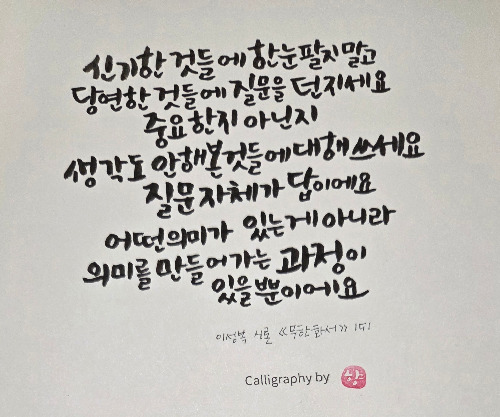 신기한 것들에 한눈팔지말고
당연한 것들에 질문을 던지세요
중요한지 아닌지
생각도 안해본것들에대해쓰세요
질문자체가 답이에요
어떤의미가 있는게아니라
의미를 만들어가는 과정이
있을뿐이에요
이성복 시론 《무한화서》 151
Calligraphy by 향